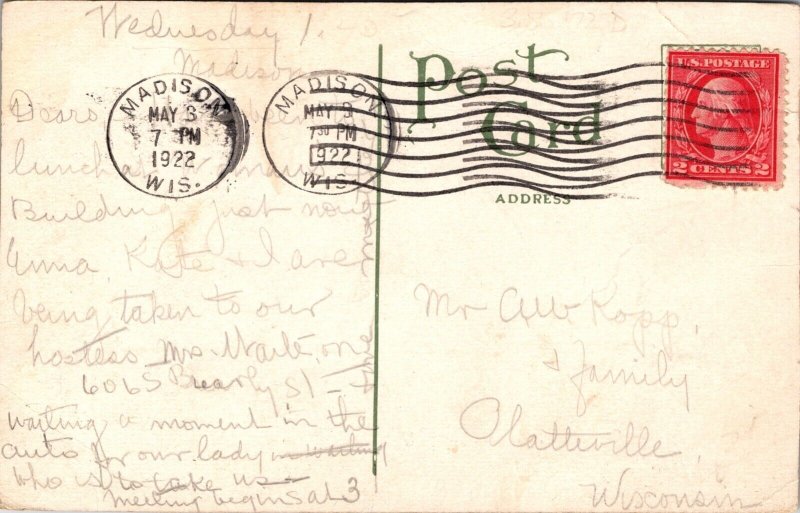 Wednesday
Madison
MADISON
MAY 3
7 PM
1922
WIS.
MADISON
MAY 3
7 30 PM
1922
WIS.
Post
Card
ADDRESS
U.S. POSTAGE
2 CENTS 2
Dears
lunch
Building just now
Anna, Kate & I are
being taken to our
hostess Mrs. Waite,
606 S Brearly St
waiting a moment in the
auto for our lady in waiting
who is to take us
meeting begins at 3
Mr Kopp,
& family
Platteville,
Wisconsin